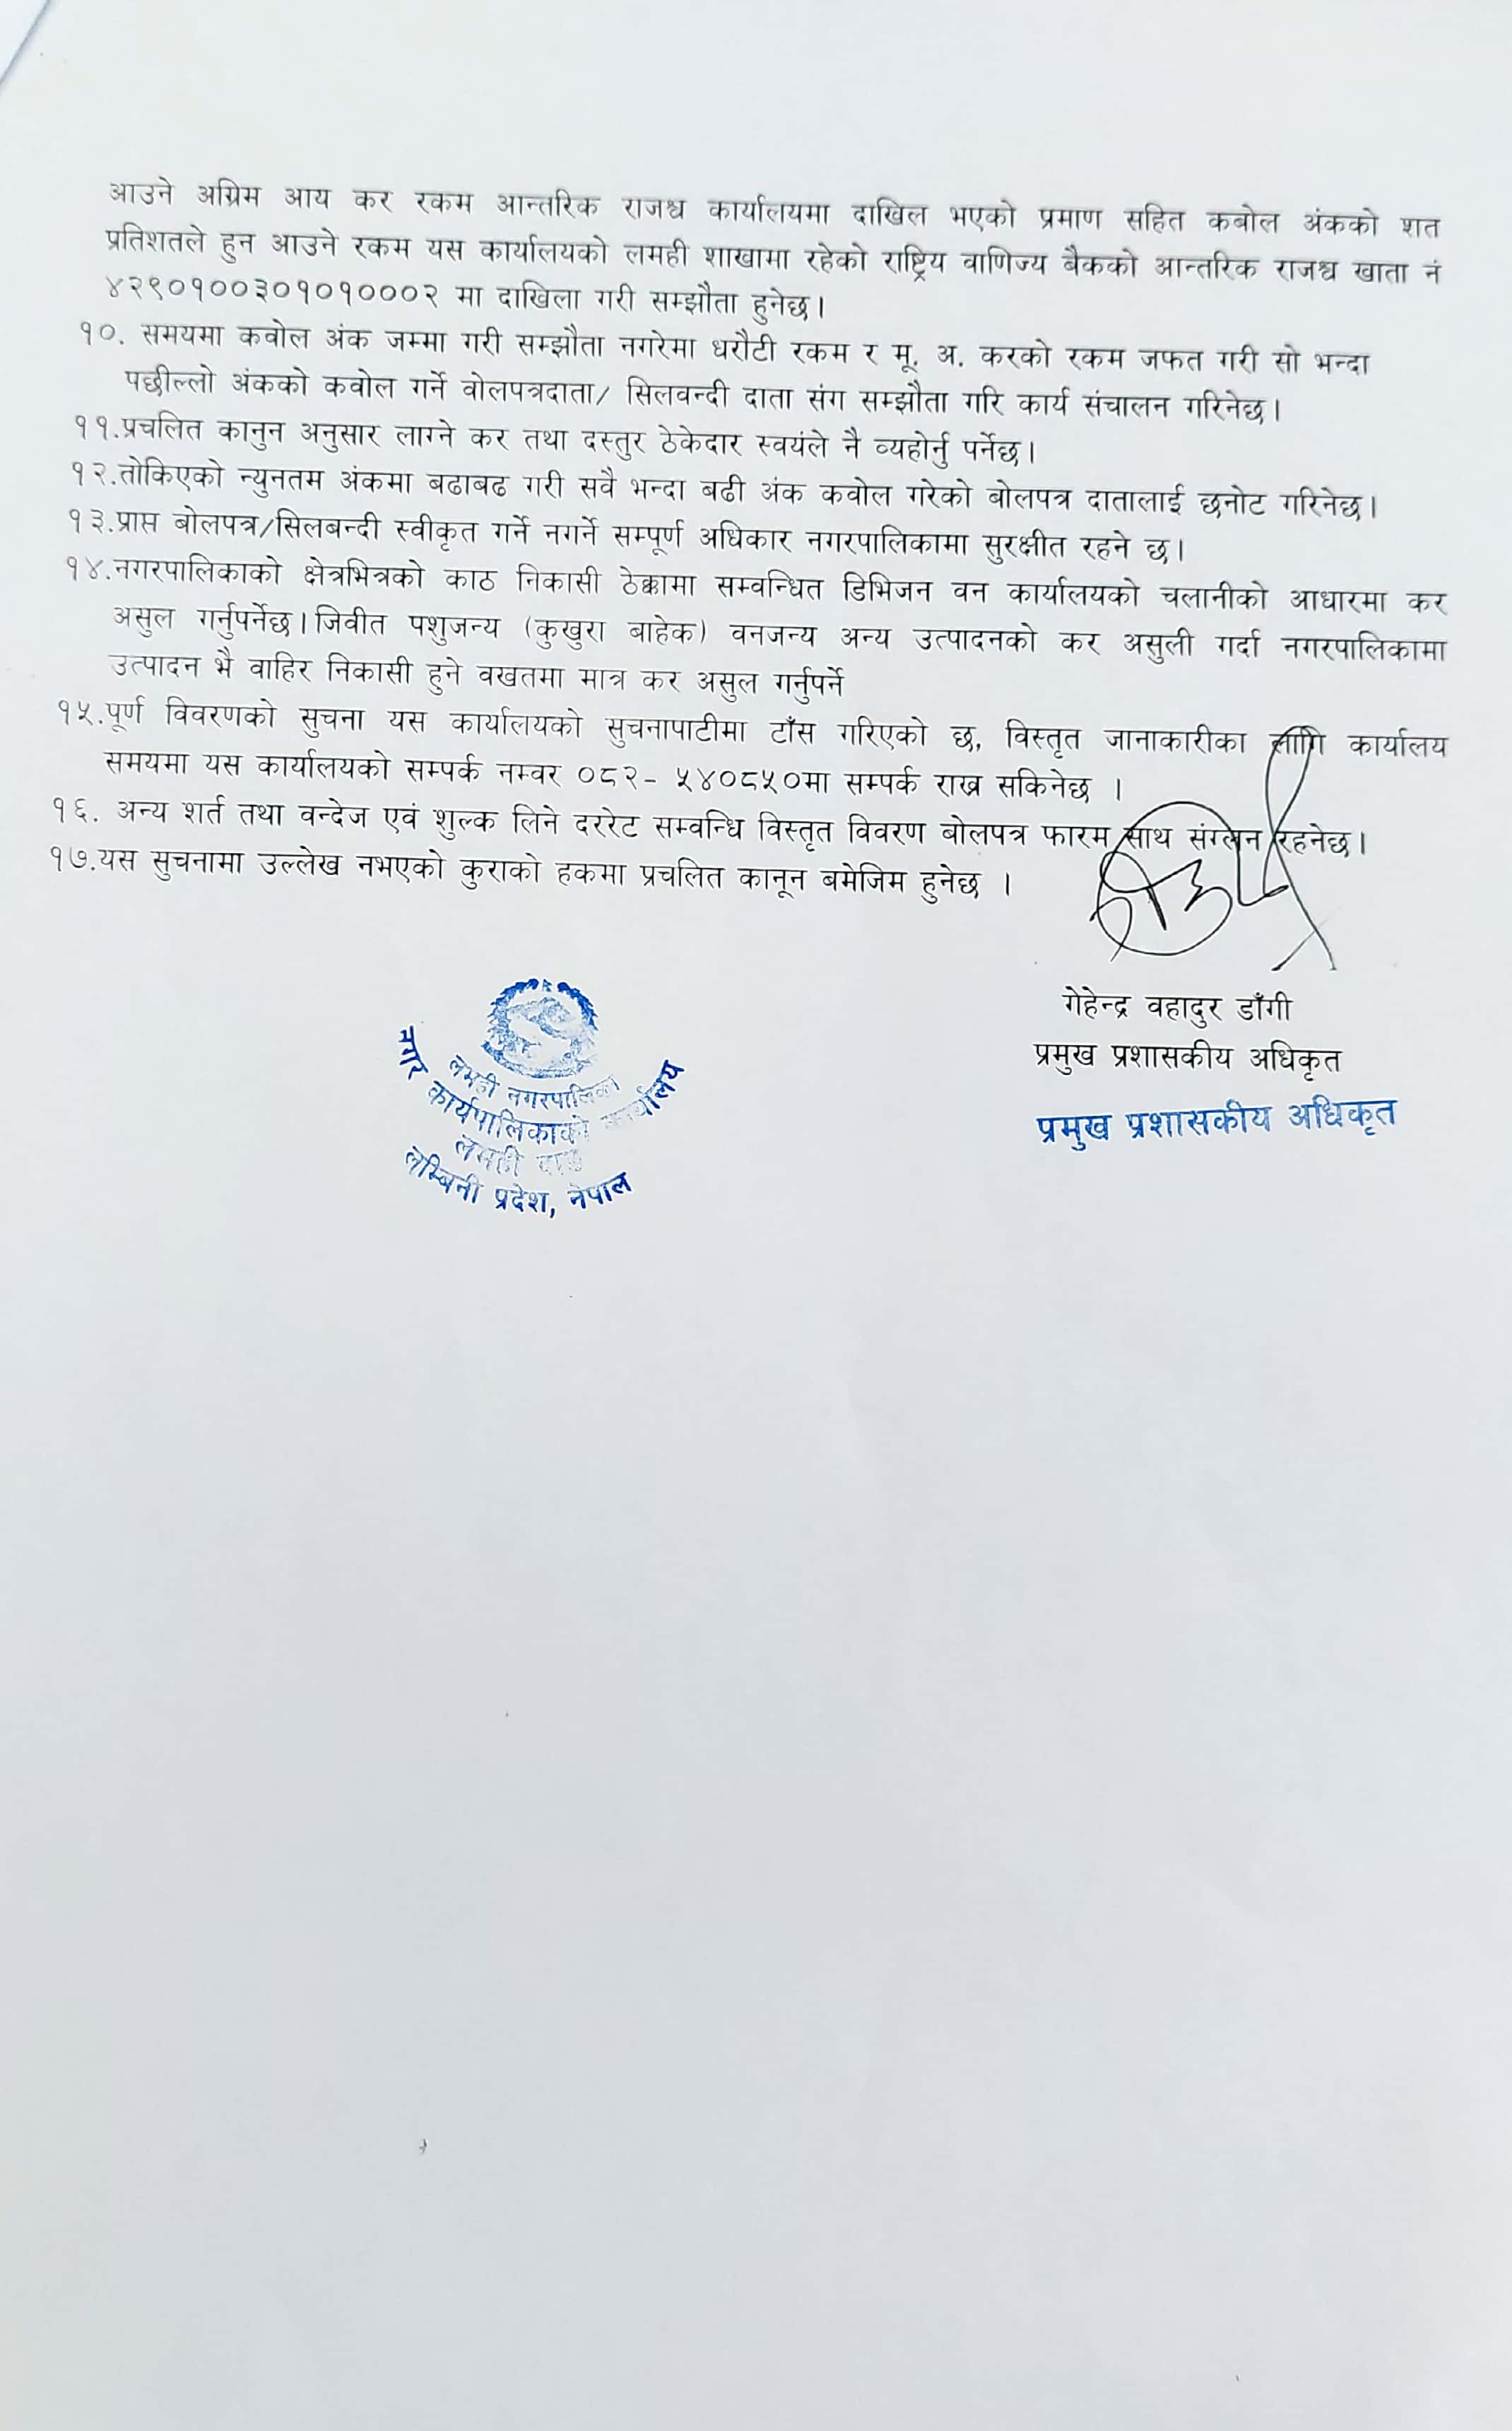 आउने अग्रिम आय कर रकम आन्तरिक राजश्व कार्यालयमा दाखिल भएको प्रमाण सहित कबोल अंकको शत
प्रतिशतले हुन आउने रकम यस कार्यालयको लमही शाखामा रहेको राष्ट्रिय वाणिज्य बैकको आन्तरिक राजश्व खाता नं
४२९०१००३०१०१०००२ मा दाखिला गरी सम्झौता हुनेछ।
१०. समयमा कवोल अंक जम्मा गरी सम्झौता नगरेमा धरौटी रकम र मू. अ. करको रकम जफत गरी सो भन्दा
पछील्लो अंकको कवोल गर्ने वोलपत्रदाता/ सिलवन्दी दाता संग सम्झौता गरि कार्य संचालन गरिनेछ।
११.प्रचलित कानुन अनुसार लाग्ने कर तथा दस्तुर ठेकेदार स्वयंले नै व्यहोर्नु पर्नेछ।
१२.तोकिएको न्युनतम अंकमा बढाबढ गरी सवै भन्दा बढी अंक कवोल गरेको बोलपत्र दातालाई छनोट गरिनेछ।
१३.प्राप्त बोलपत्र/सिलबन्दी स्वीकृत गर्ने नगर्ने सम्पूर्ण अधिकार नगरपालिकामा सुरक्षीत रहने छ।
१४.नगरपालिकाको क्षेत्रभित्रको काठ निकासी ठेक्कामा सम्वन्धित डिभिजन वन कार्यालयको चलानीको आधारमा कर
असुल गर्नुपर्नेछ।जिवीत पशुजन्य (कुखुरा बाहेक) वनजन्य अन्य उत्पादनको कर असुली गर्दा नगरपालिकामा
उत्पादन भै वाहिर निकासी हुने वखतमा मात्र कर असुल गर्नुपर्ने
१५.पूर्ण विवरणको सुचना यस कार्यालयको सुचनापाटीमा टाँस गरिएको छ, विस्तृत जानाकारीका लागि कार्यालय
समयमा यस कार्यालयको सम्पर्क नम्वर ०८२- ५४०८५०मा सम्पर्क राख्न सकिनेछ ।
१६. अन्य शर्त तथा वन्देज एवं शुल्क लिने दररेट सम्वन्धि विस्तृत विवरण बोलपत्र फारम साथ संग्लन रहनेछ।
१७.यस सुचनामा उल्लेख नभएको कुराको हकमा प्रचलित कानून बमेजिम हुनेछ ।
गेहेन्द्र वहादुर डाँगी
प्रमुख प्रशासकीय अधिकृत
प्रमुख प्रशासकीय अधिकृत
लमही नगरपालिका
नगर कार्यपालिकाको कार्यालय
लमही दाङ
लुम्बिनी प्रदेश, नेपाल